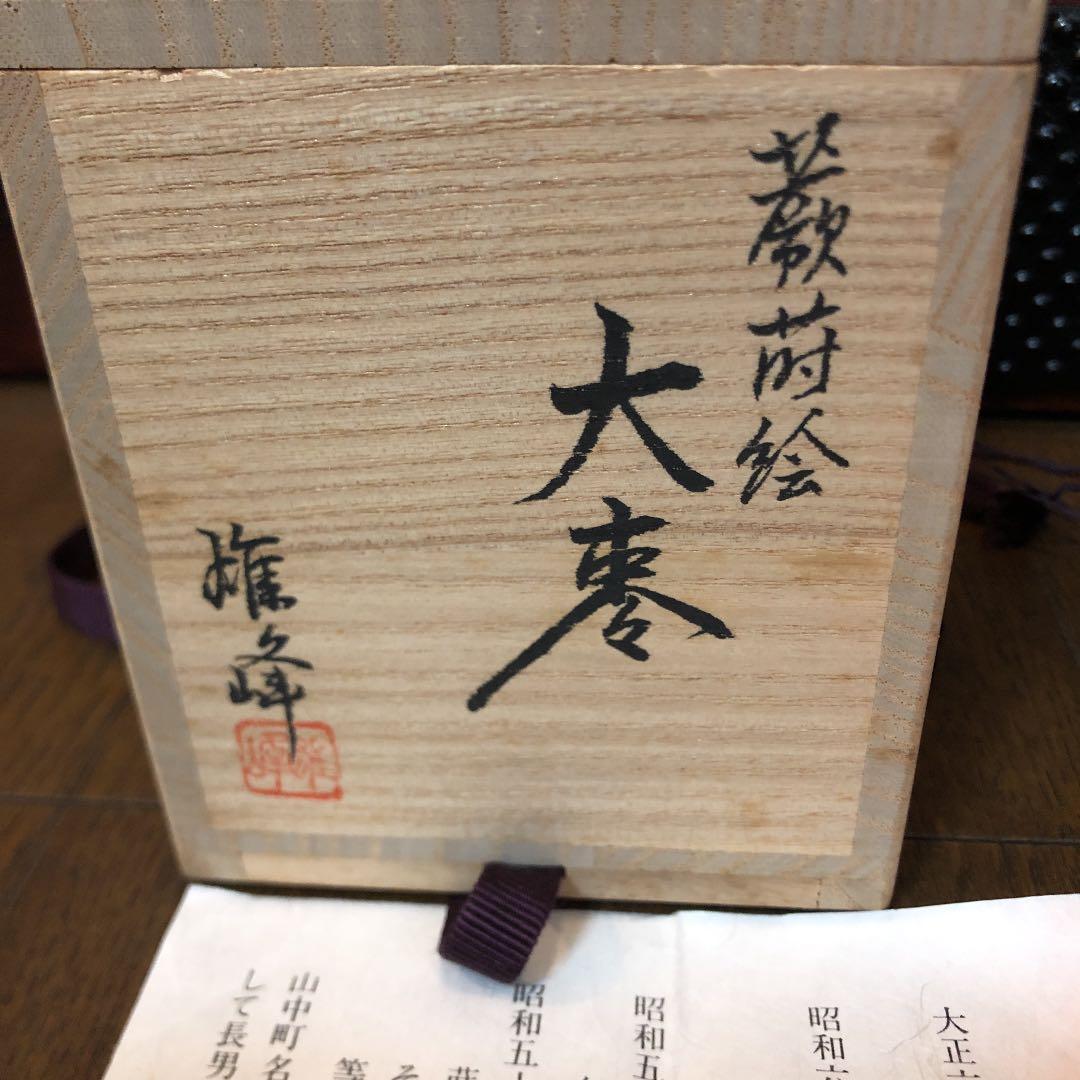 蕨蒔絵
大棗
雄峰
大正
昭和六
昭和五
昭和五十
蒔
そ
等
山中町名
して長男